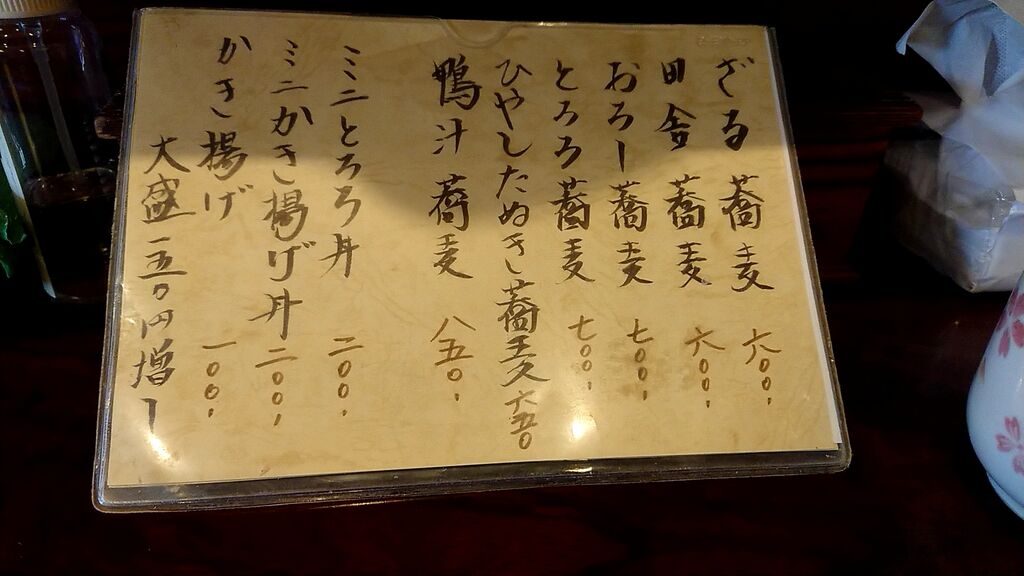 ざる蕎麦 六〇〇、
田舎蕎麦 六〇〇、
おろし蕎麦 七〇〇、
とろろ蕎麦 七〇〇、
ひやしたぬき蕎麦 六五〇
鴨汁蕎麦 八五〇、
ミニとろろ丼 二〇〇、
ミニかき揚げ丼 二〇〇、
かき揚げ 一〇〇、
大盛一五〇円増し